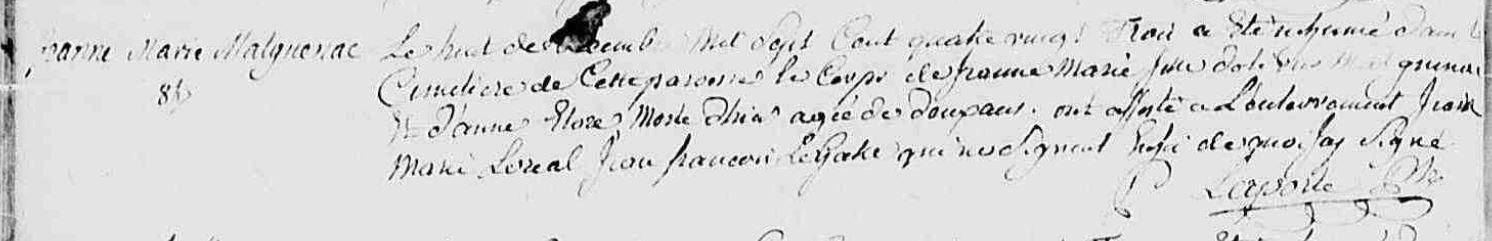 Jeanne Marie Malguenac Le huit décembre Mil Sept Cent quatre vingt Trois a Eté inhumé dans le
8b Cimetiere de Cette paroisse le Corps de Jeanne Marie fille d'olivier Malguenac
Et d'anne Etore Morte d'hier agée de deux ans. ont assisté a L'enterrement Jeanne
Marie Loreal Jean francois Le Gale qui ne Signent En foi de quoi Jay Signé
Laporte